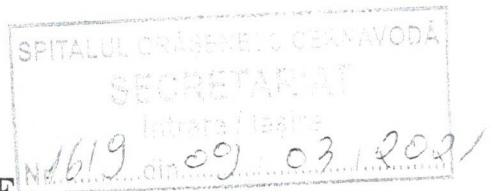 SPITALUL ORĂȘENESC CERNAVODĂ
SECRETARIAT
Intrare / Ieșire
Nr. 1619 din 09 / 03 / 2021